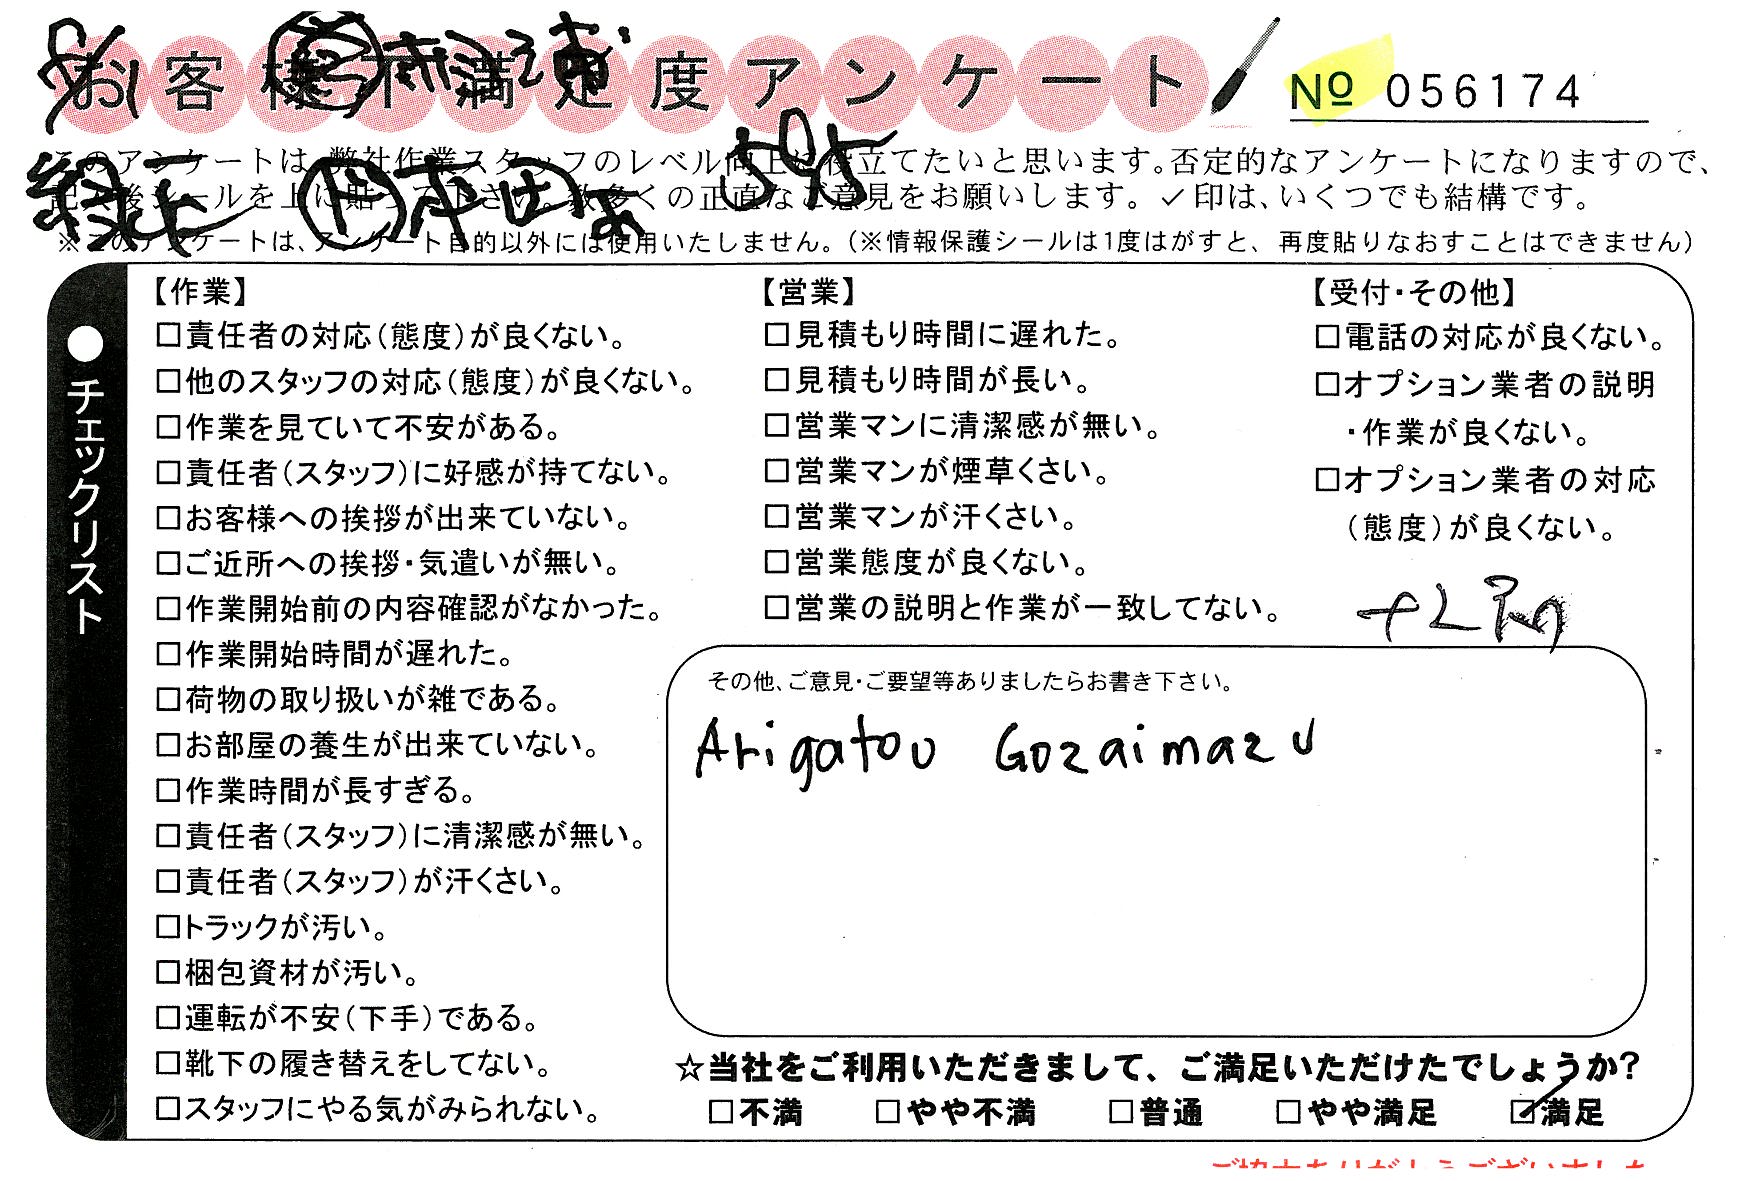 お客様不満足度アンケート
№ 056174
このアンケートは、弊社作業スタッフのレベル向上に役立てたいと思います。否定的なアンケートになりますので、
記入後シールを上に貼って下さい。数多くの正直なご意見をお願いします。✓印は、いくつでも結構です。
※このアンケートは、アンケート目的以外には使用いたしません。（※情報保護シールは1度はがすと、再度貼りなおすことはできません）
●チェックリスト
【作業】
□責任者の対応（態度）が良くない。
□他のスタッフの対応（態度）が良くない。
□作業を見ていて不安がある。
□責任者（スタッフ）に好感が持てない。
□お客様への挨拶が出来ていない。
□ご近所への挨拶・気遣いが無い。
□作業開始前の内容確認がなかった。
□作業開始時間が遅れた。
□荷物の取り扱いが雑である。
□お部屋の養生が出来ていない。
□作業時間が長すぎる。
□責任者（スタッフ）に清潔感が無い。
□責任者（スタッフ）が汗くさい。
□トラックが汚い。
□梱包資材が汚い。
□運転が不安（下手）である。
□靴下の履き替えをしてない。
□スタッフにやる気がみられない。
【営業】
□見積もり時間に遅れた。
□見積もり時間が長い。
□営業マンに清潔感が無い。
□営業マンが煙草くさい。
□営業マンが汗くさい。
□営業態度が良くない。
□営業の説明と作業が一致してない。
【受付・その他】
□電話の対応が良くない。
□オプション業者の説明
・作業が良くない。
□オプション業者の対応
（態度）が良くない。
その他、ご意見・ご要望等ありましたらお書き下さい。
Arigatou Gozaimazu
☆当社をご利用いただきまして、ご満足いただけたでしょうか？
□不満 □やや不満 □普通 □やや満足 ☑満足
ご協力ありがとうございました